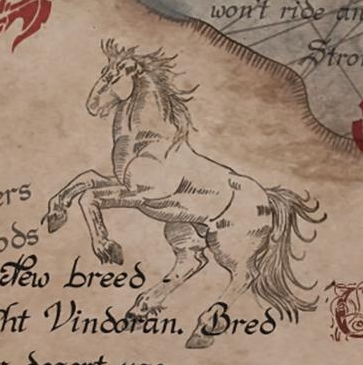 won't ride an
Stro
ers
ods
New breed -
ht Vindoran. Bred
desert use